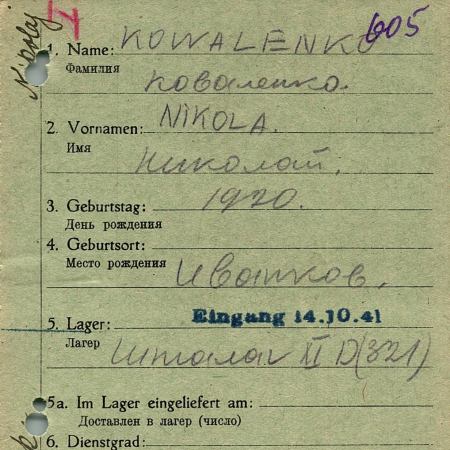 605
1. Name: KOWALENKO
Фамилия
Коваленко.
2. Vornamen: NIKOLA.
Имя
Николай.
3. Geburtstag: 1920.
День рождения
4. Geburtsort:
Место рождения
Иватков,
Eingang 14.10.41
5. Lager:
Лагерь
Шталаг XI D (321)
5a. Im Lager eingeliefert am:
Доставлен в лагер (число)
6. Dienstgrad: